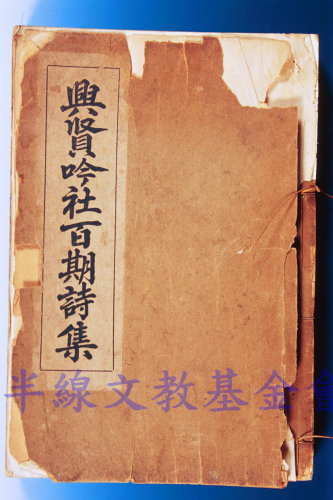 興賢吟社百期詩集
半線文教基金會